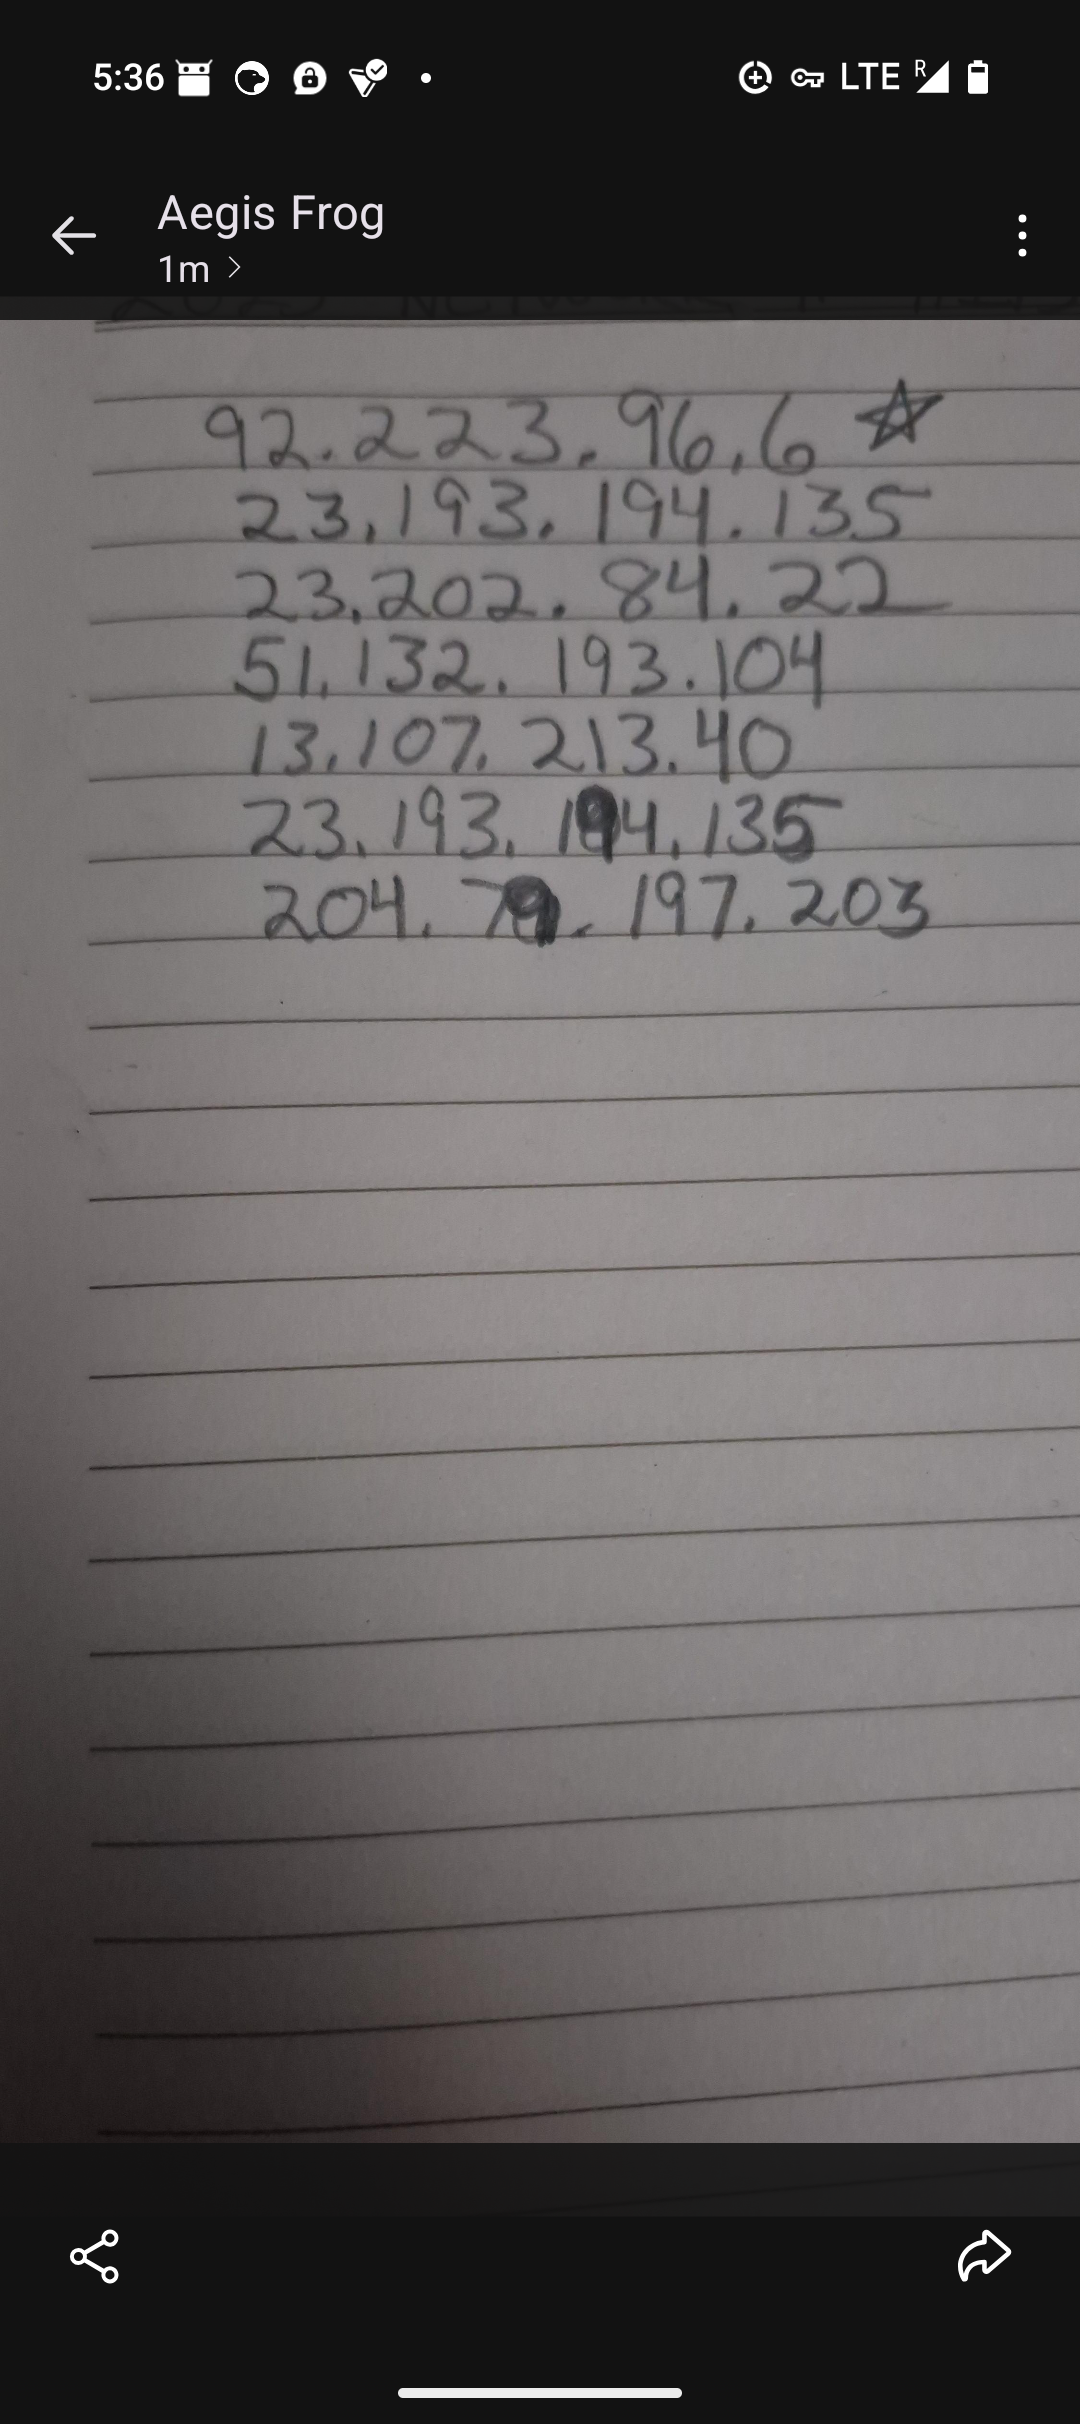 5:36
LTE R
Aegis Frog
1m >
92.223.96.6
23.193.194.135
23.202.84.22
51.132.193.104
13.107.213.40
23.193.194.135
204.79.197.203